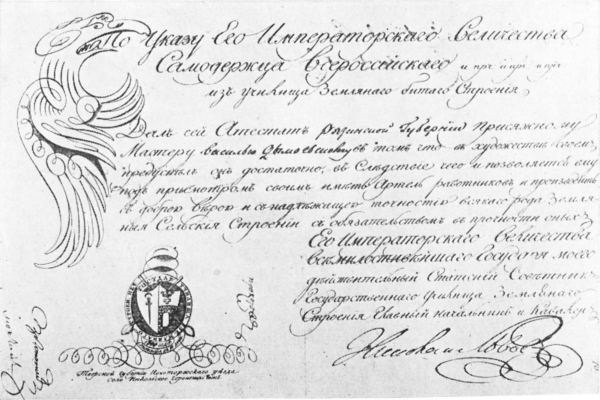 По Указу Его Императорскаго Величества
Самодержца Всероссийскаго и пр: и пр: и пр:
изъ училища Землянаго битаго Строения
Данъ сей Аттестатъ Рязинской Губернии присяжному
Мастеру василью въ томъ что въ художествѣ своемъ
онъ достаточно, въ Следствие чего и позволяется ему
подъ присмотромъ своимъ имѣть Артель работниковъ и производить
въ доброй Вѣрою и съ надлежащею точностию всякаго рода Земля
ныя Сельския Строении съ обязательствомъ въ прочности оныхъ
Его Императорскаго Величества
всѣмилостивѣйшаго Государя моего
действительный Статский Советникъ
Государственнаго Училища Землянаго
Строения Главный начальникъ и Кавалеръ
Львовъ
Тверской Губернии Новоторжскаго уезда
Село Никольское